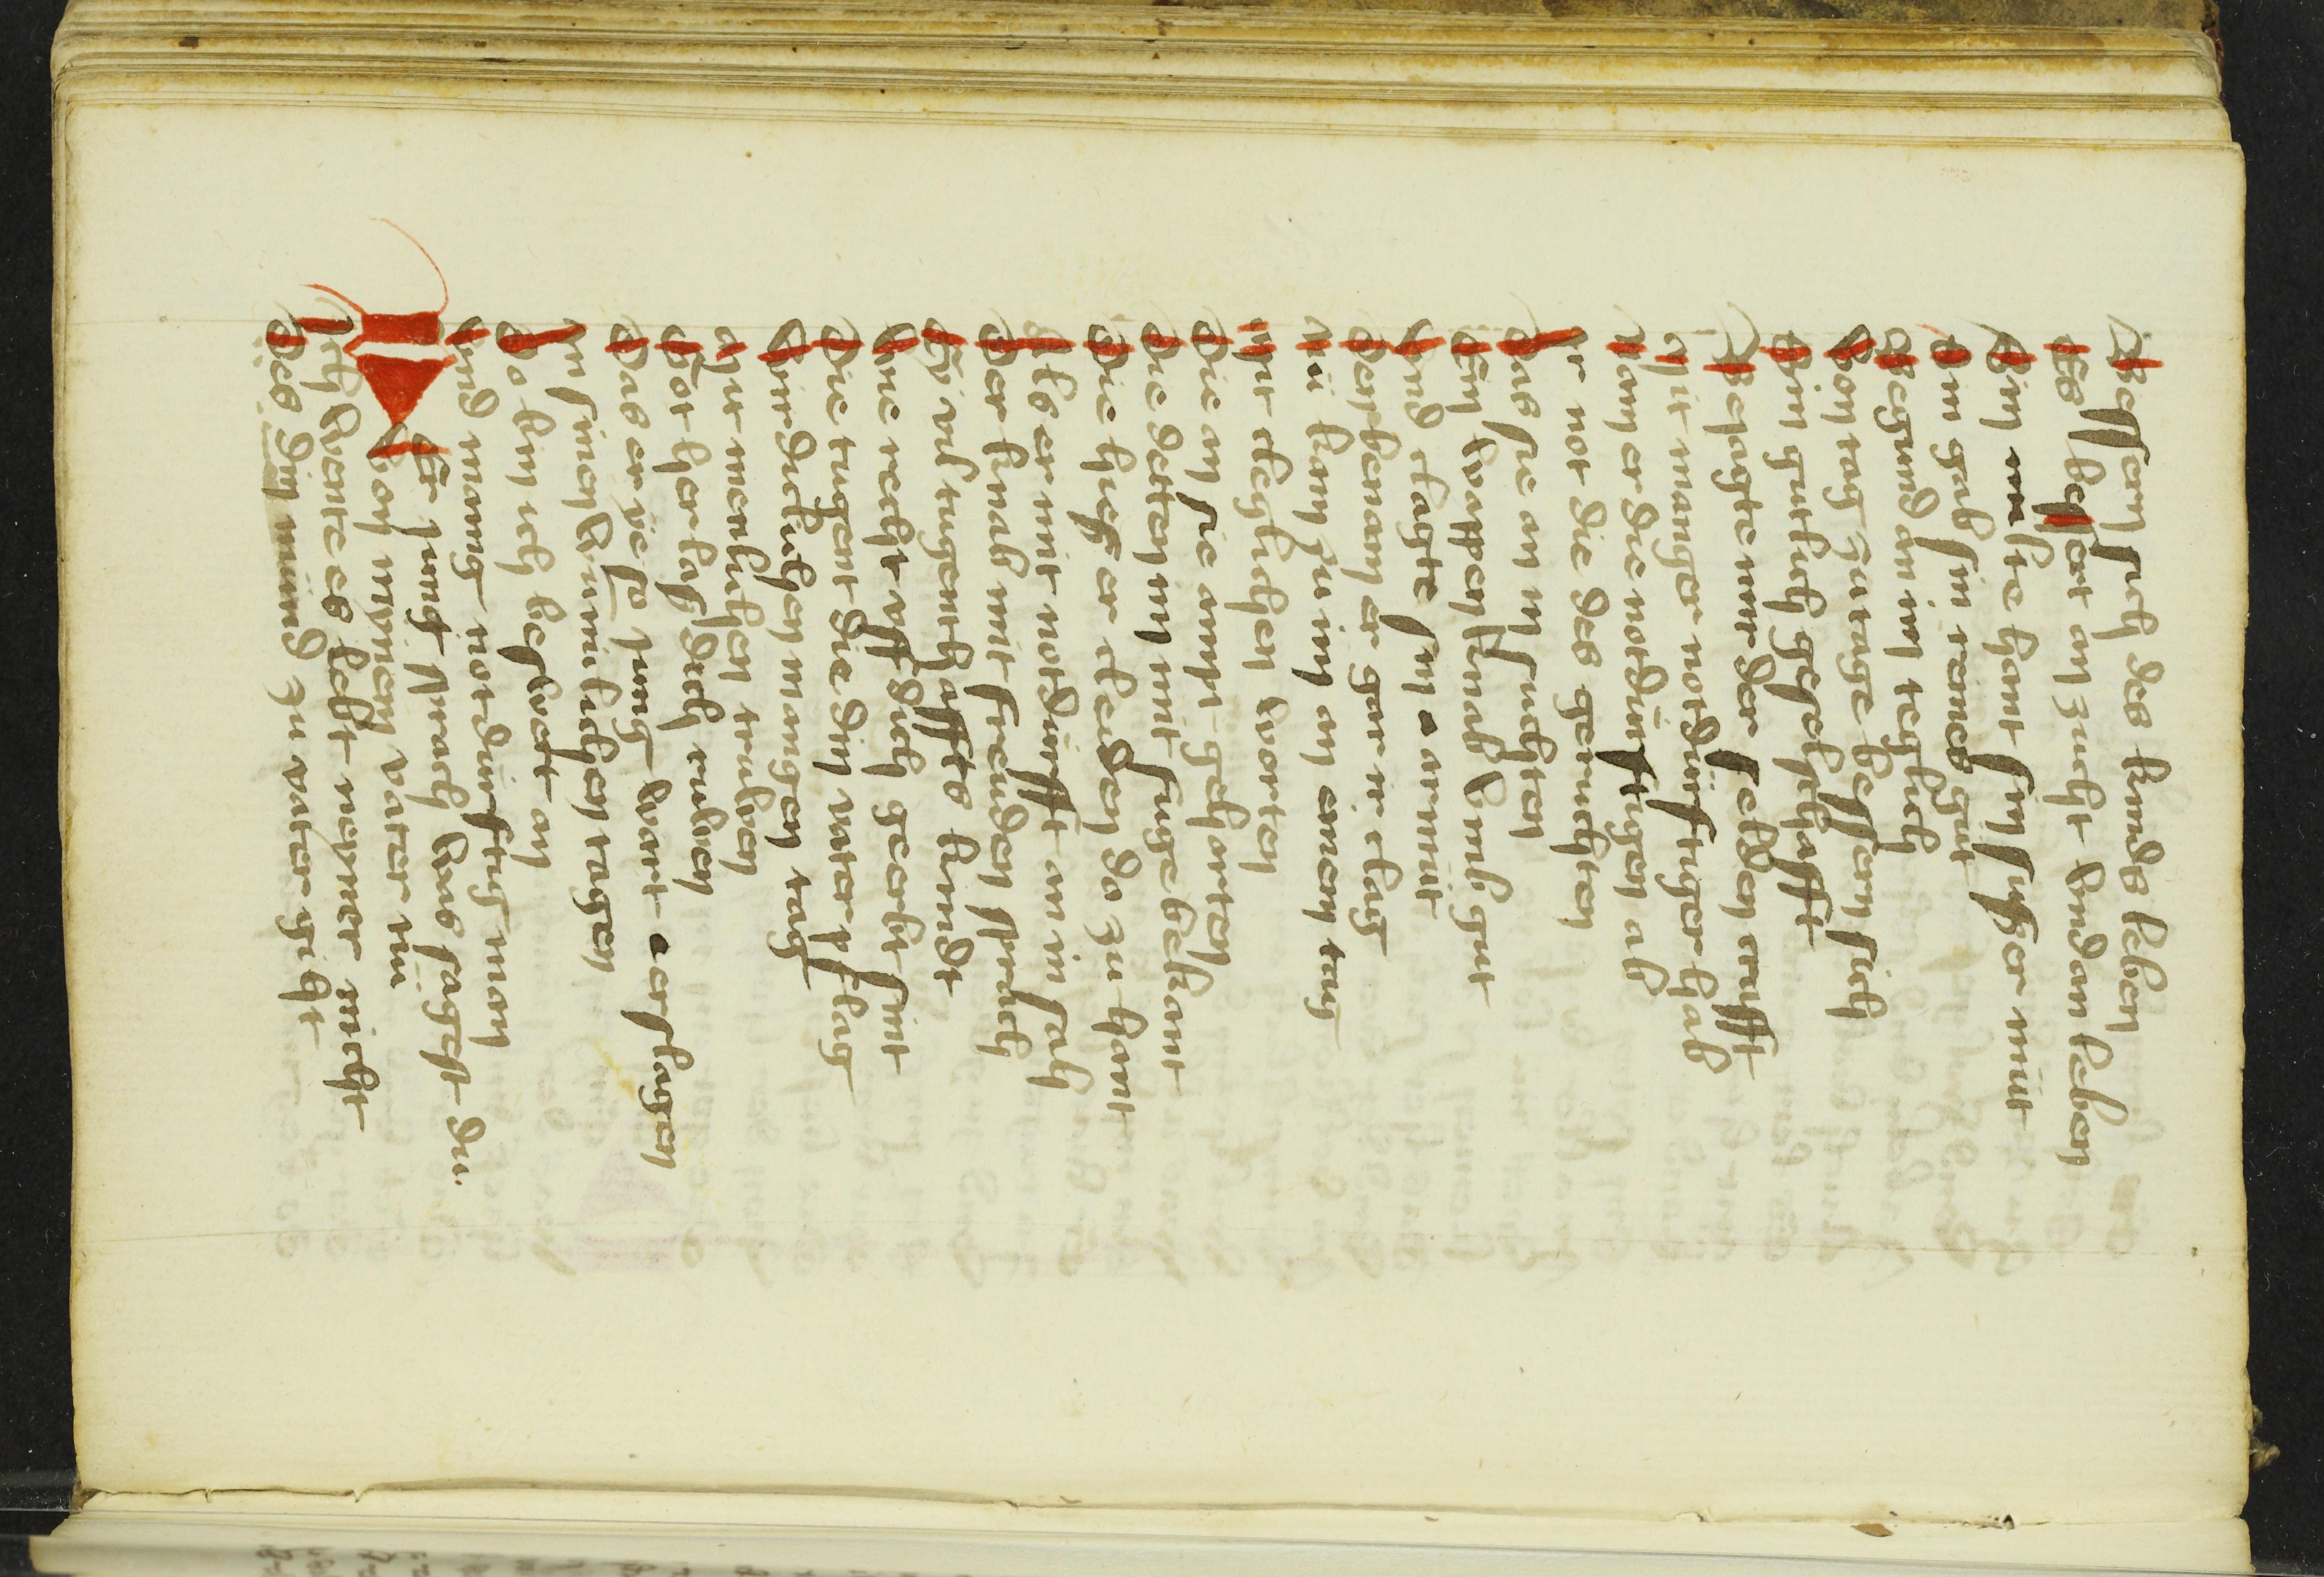 Bessern sich des kinds leben
Es begert an zucht vnd an leben
Sin milte hant sin susser mut
Im gab sin reines gut
Begund an im teglich
Von tag zu tage bessern sich
Sin gutlich geselschafft
Beiagte mit der selden crafft
Mit manger notdurfftiger hab
Nam er die notdurfftigen ab
Ir not die des geruchten
Das sie an in suchten
Ein wappen knab vmb gut
Vnd clagte sin armut
Dem benam er gar ir clag
Nu kam zu im an einen tag
Mit cleglichen worten
Die an sie ampt gehorten
Die detten in mit fuge bekant
Die hieß er cleiden do zu hant
Als er mit notdurfft an in sah
Der knab mit freuden sprach
Ey vil tugenthaffts kindt
Wie recht vff dich geerbt sint
Die tugent die din vater pflag
Wirdiclichen mangen tag
Mit menlichen truwen
Vor her laß dich ruwen
Das er ye so jung wart erslagen
In sinen wunniclichen tagen
Do bin ich beswert an
Vnd manig notdurfftig man
Er jung sprach was sagest du
Von mynem vater nu
Ich wente es lebt nymer nicht
Des din mund zu vater gicht